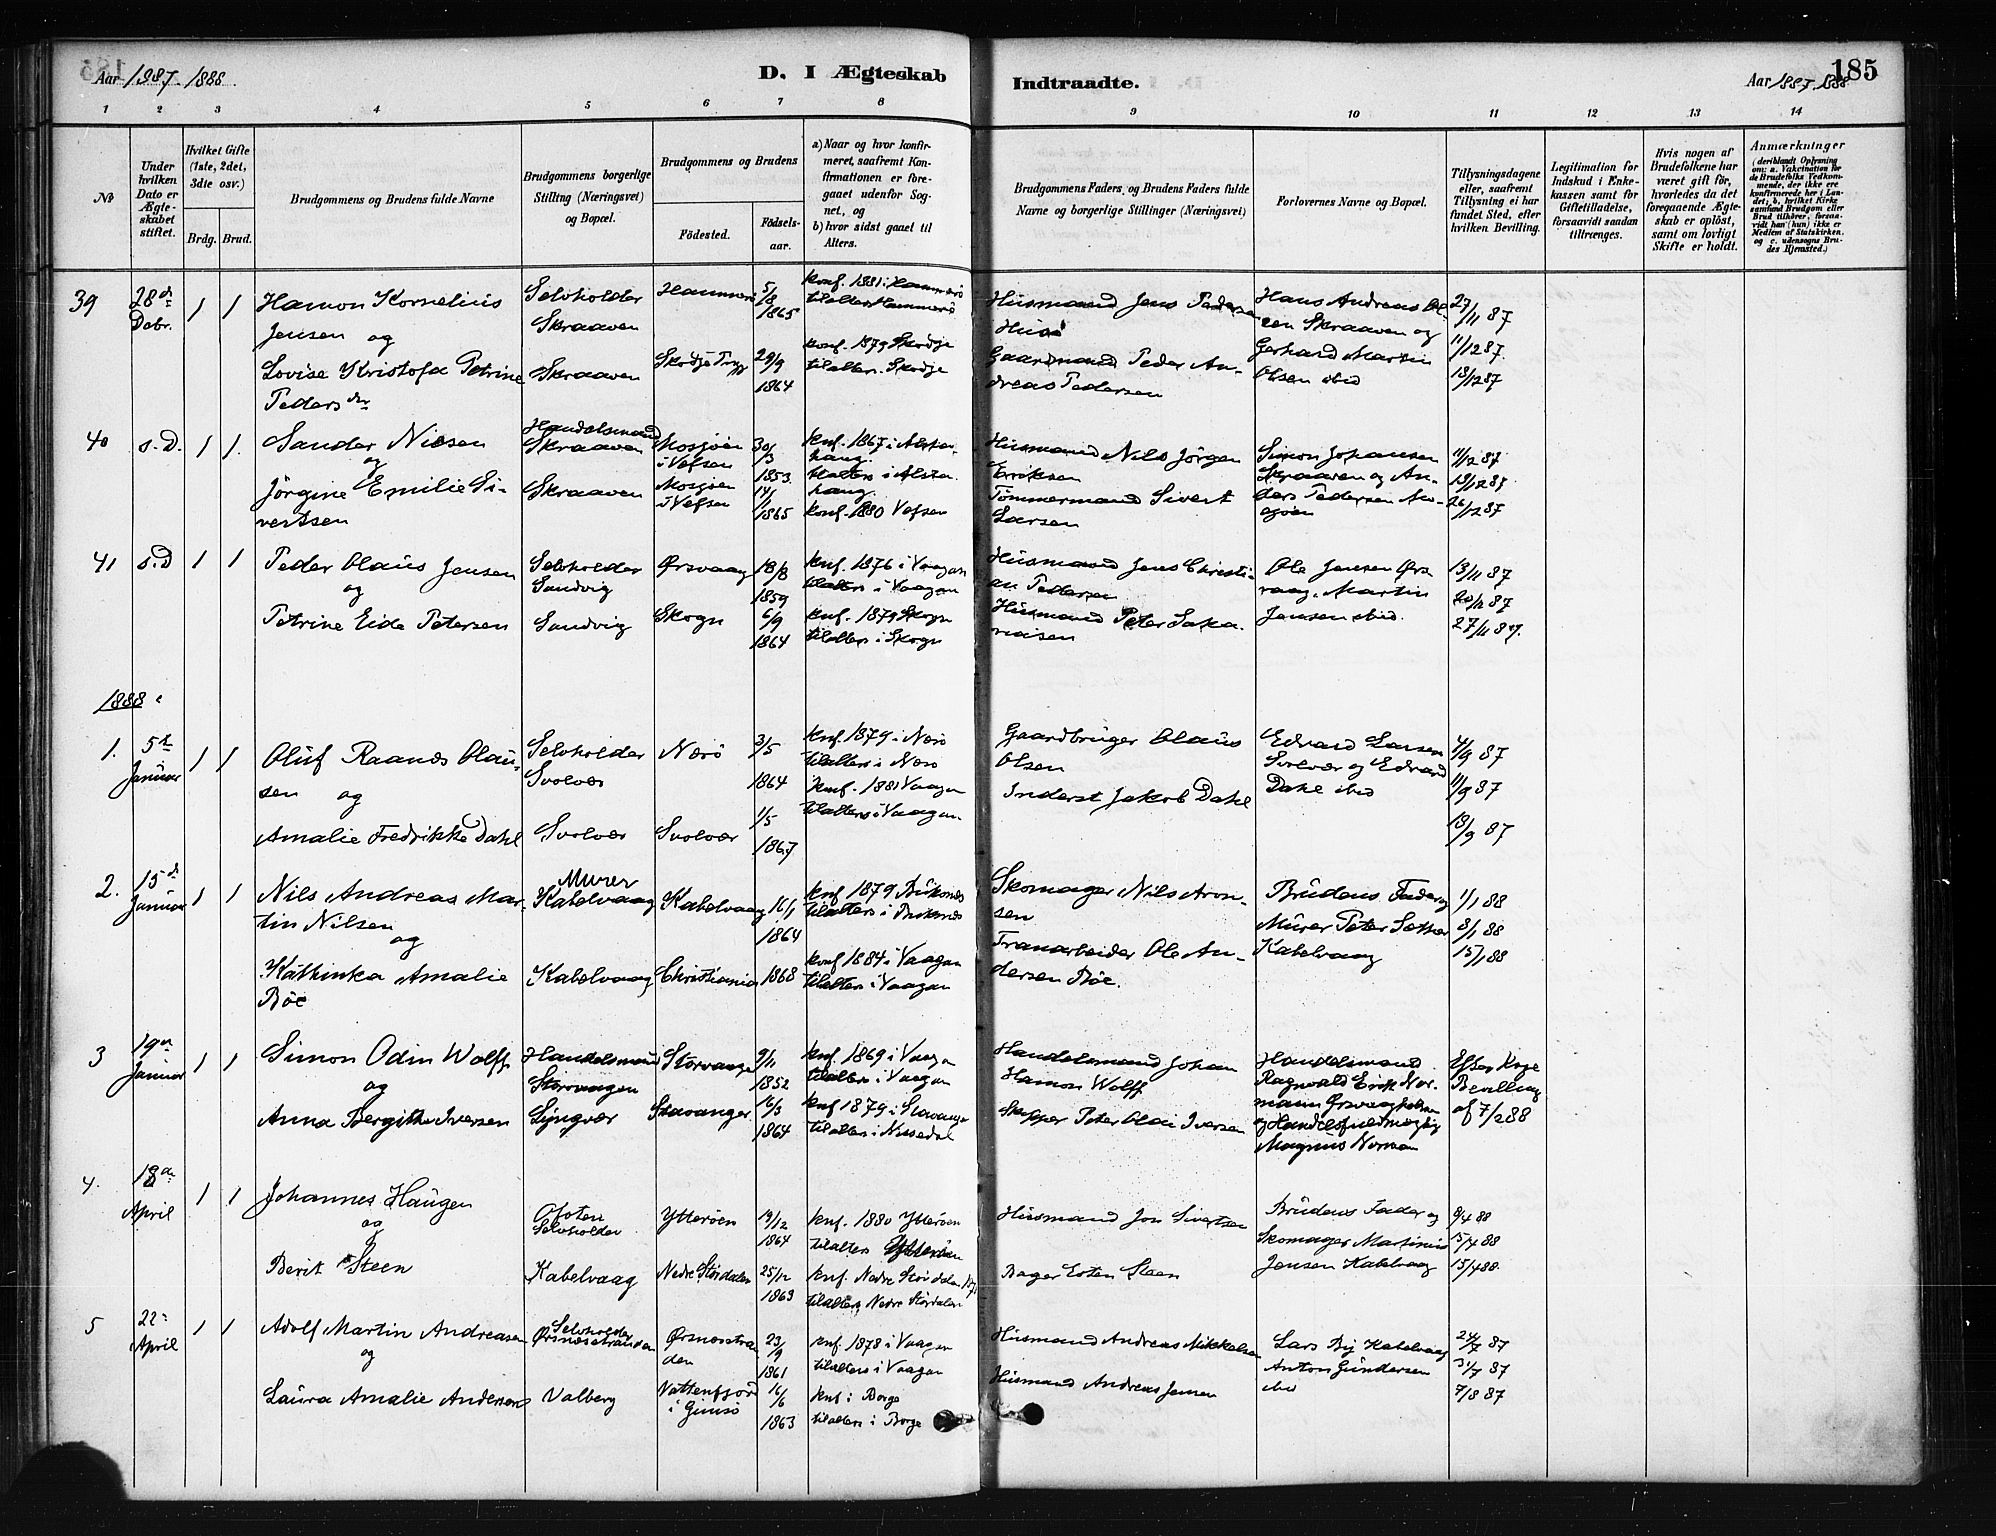 Aar 1887-1888.
D. I Ægteskab
Indtraadte.
Aar 1887-1888
185
1 2 3 4 5 6 7 8 9 10 11 12 13 14
№
Under hvilken Dato er Ægteskabet stiftet.
Hvilket Gifte (1ste, 2det, 3dte osv.)
Brdg. Brud.
Brudgommens og Brudens fulde Navne
Brudgommens borgerlige Stilling (Næringsvei) og Bopæl.
Brudgommens og Brudens
Fødested.
Fødselsaar.
a) Naar og hvor konfirmeret, saafremt Konfirmationen er foregaaet udenfor Sognet, og
b) hvor sidst gaaet til Alters.
Brudgommens Faders og Brudens Faders fulde Navne og borgerlige Stillinger (Næringsvei)
Forlovernes Navne og Bopæl.
Tillysningsdagene eller, saafremt Tillysning ei har fundet Sted, efter hvilken Bevilling.
Legitimation for Indskud i Enkekassen samt for Giftetilladelse, forsaavidt saadan tiltrænges.
Hvis nogen af Brudefolkene har været gift før, hvorledes da det foregaaende Ægteskab er opløst, samt om lovligt Skifte er holdt.
Anmærkninger
39 28de Debr. 1 1
Hamon Kornelius
Jensen og
Lovise Kristofa Petrine
Pedersdtr
Selvholder
Skraaven
Skraaven
Hammerö
Skodje
5/8 1865
29/9 1864
konf. 1881 i Hammerö
tilalters Hammerö
konf. 1879 Skodje
tilalters. Skodje
Husmand Jens Pedersen
Gaardmand Peder An-
dreas Pedersen
Hans Andreas Ol-
sen Skraaven og
Gerhard Martin
Olsen ibid
27/11 87
11/12 87.
18/12 87
40 s.D. 1 1.
Sander Nilsen
og
Jörgine Emilie Si-
vertsen
Handelsmand
Skraaven
Skraaven
Mosjøen
i Vefsen
Mosjøen
i Vefsen
30/3 1853.
14/11 1865
knf. 1867 i Alsta-
haug.
tilalters i Alsta
haug.
konf. 1880 Vefsen
Husmand Nils Jörgen
Eriksen
Tömmermand Sivert
Larsen
Simon Johansen
Skraaven og An-
ders Pedersen
11/12 87
18/12 87
26/12 87
41 s.D 1 1
Peder Olaus Jensen
og
Petrine Eide Petersen
Selvholder
Sandvig
Sandvig
Ørsvaag
Skogn
18/8 1859
6/9 1864
knf. 1876 i Vaagan
tilalters i Vaagan
knf. 1879 Skogn
tilalters i Skogn
Husmand Jens Christi-
an Pedersen
Husmand Peter Saka-
riasen
Ole Jensen Ørs-
vaag. Martin
Jensen ibid.
13/11 87
20/11 87
27/11 87.
1888.
1. 5te Januar 1 1
Oluf Raanes Olau-
sen og
Amalie Fredrikke Dahl
Selvholder
Svolvær
Svolvær
Nærö
Svolvær
3/5 1864
1/5 1867
knf. 1879 i Nærö
tilalters i Nærö
knf. 1881 Vaagan
tilalters i Vaagan.
Gaardbruger Olaus
Olsen
Inderst Jakob Dahl
Edvard Larsen
Svolvær og Edvard
Dahl ibid
4/9 87
11/9 87
18/9 87
2. 15de Januar 1 1
Nils Andreas Mar-
tin Nilsen
og
Kathinka Amalie
Böe
Murer
Kabelvaag
Kabelvaag
Kabelvaag
Christiania
16/1 1864
1868
knf 1879 Buksnes
tilalters i Buksnes
konf 1884 i Vaagan
tilalters i Vaagan
Skomager Nils Aron-
sen
Tranarbeider Ole An-
dersen Böe.
Brudens Fader og
Murer Peter Sæther
Kabelvaag
1/1 88
8/1 88
15/1 88
3 19de Januar 1 1
Simon Odin Wolff
og
Anna Bergithe Iversen
Handelsmand
Storvaagen
Lyngvær
Storvaage
Stavanger
9/11 1852
16/3 1864
knf. 1869 i Vaagan
tilalters i Vaagan
knf 1879 i Stavanger
tilalters i Nissedal
Handelsmand Johan
Hamon Wolff
Skipper Peter Olai Iversen
Handelsmand
Ragnvald Erik Nor-
mann
og Handelsfuldmægtig
Magnus Norman
Efter Kngs
Bevilling
af 7/2 88
4. 18de April 1 1
Johannes Haugen
og
Berit Steen
Ofoten
Selvholder
Kabelvaag
Ytteröen
Nedre Stördalen
19/12 1864
25/12 1863
knf. 1880 Ytteröen
tilalters Ytteröen
knf. Nedre Stördalen
tilalters Nedre Stördalen
Husmand Jon Sivertsen
Bager Esten Steen
Brudens Fader og
Skomager Martinius
Jensen Kabelvaag
8/4 88
15/4 88
15/4 88.
5 22 April 1 1
Adolf Martin Andreasen
og
Laura Amalie Andersens
Selvholder
Ørsnesstranden
Valberg
Ørsnesstra
den
Vattenfjord
i Gimsö
23/9 1861
16/6 1863
knf. 1878 i Vaagan
tilalters i Vaagan
knf i Borge
tilalters i Borge
Husmand Andreas Mikkelsen
Husmand Andreas Jensen
Lars By Kabelvaag
Anton Gundersen
ibid
24/7 87
31/7 87
7/8 87